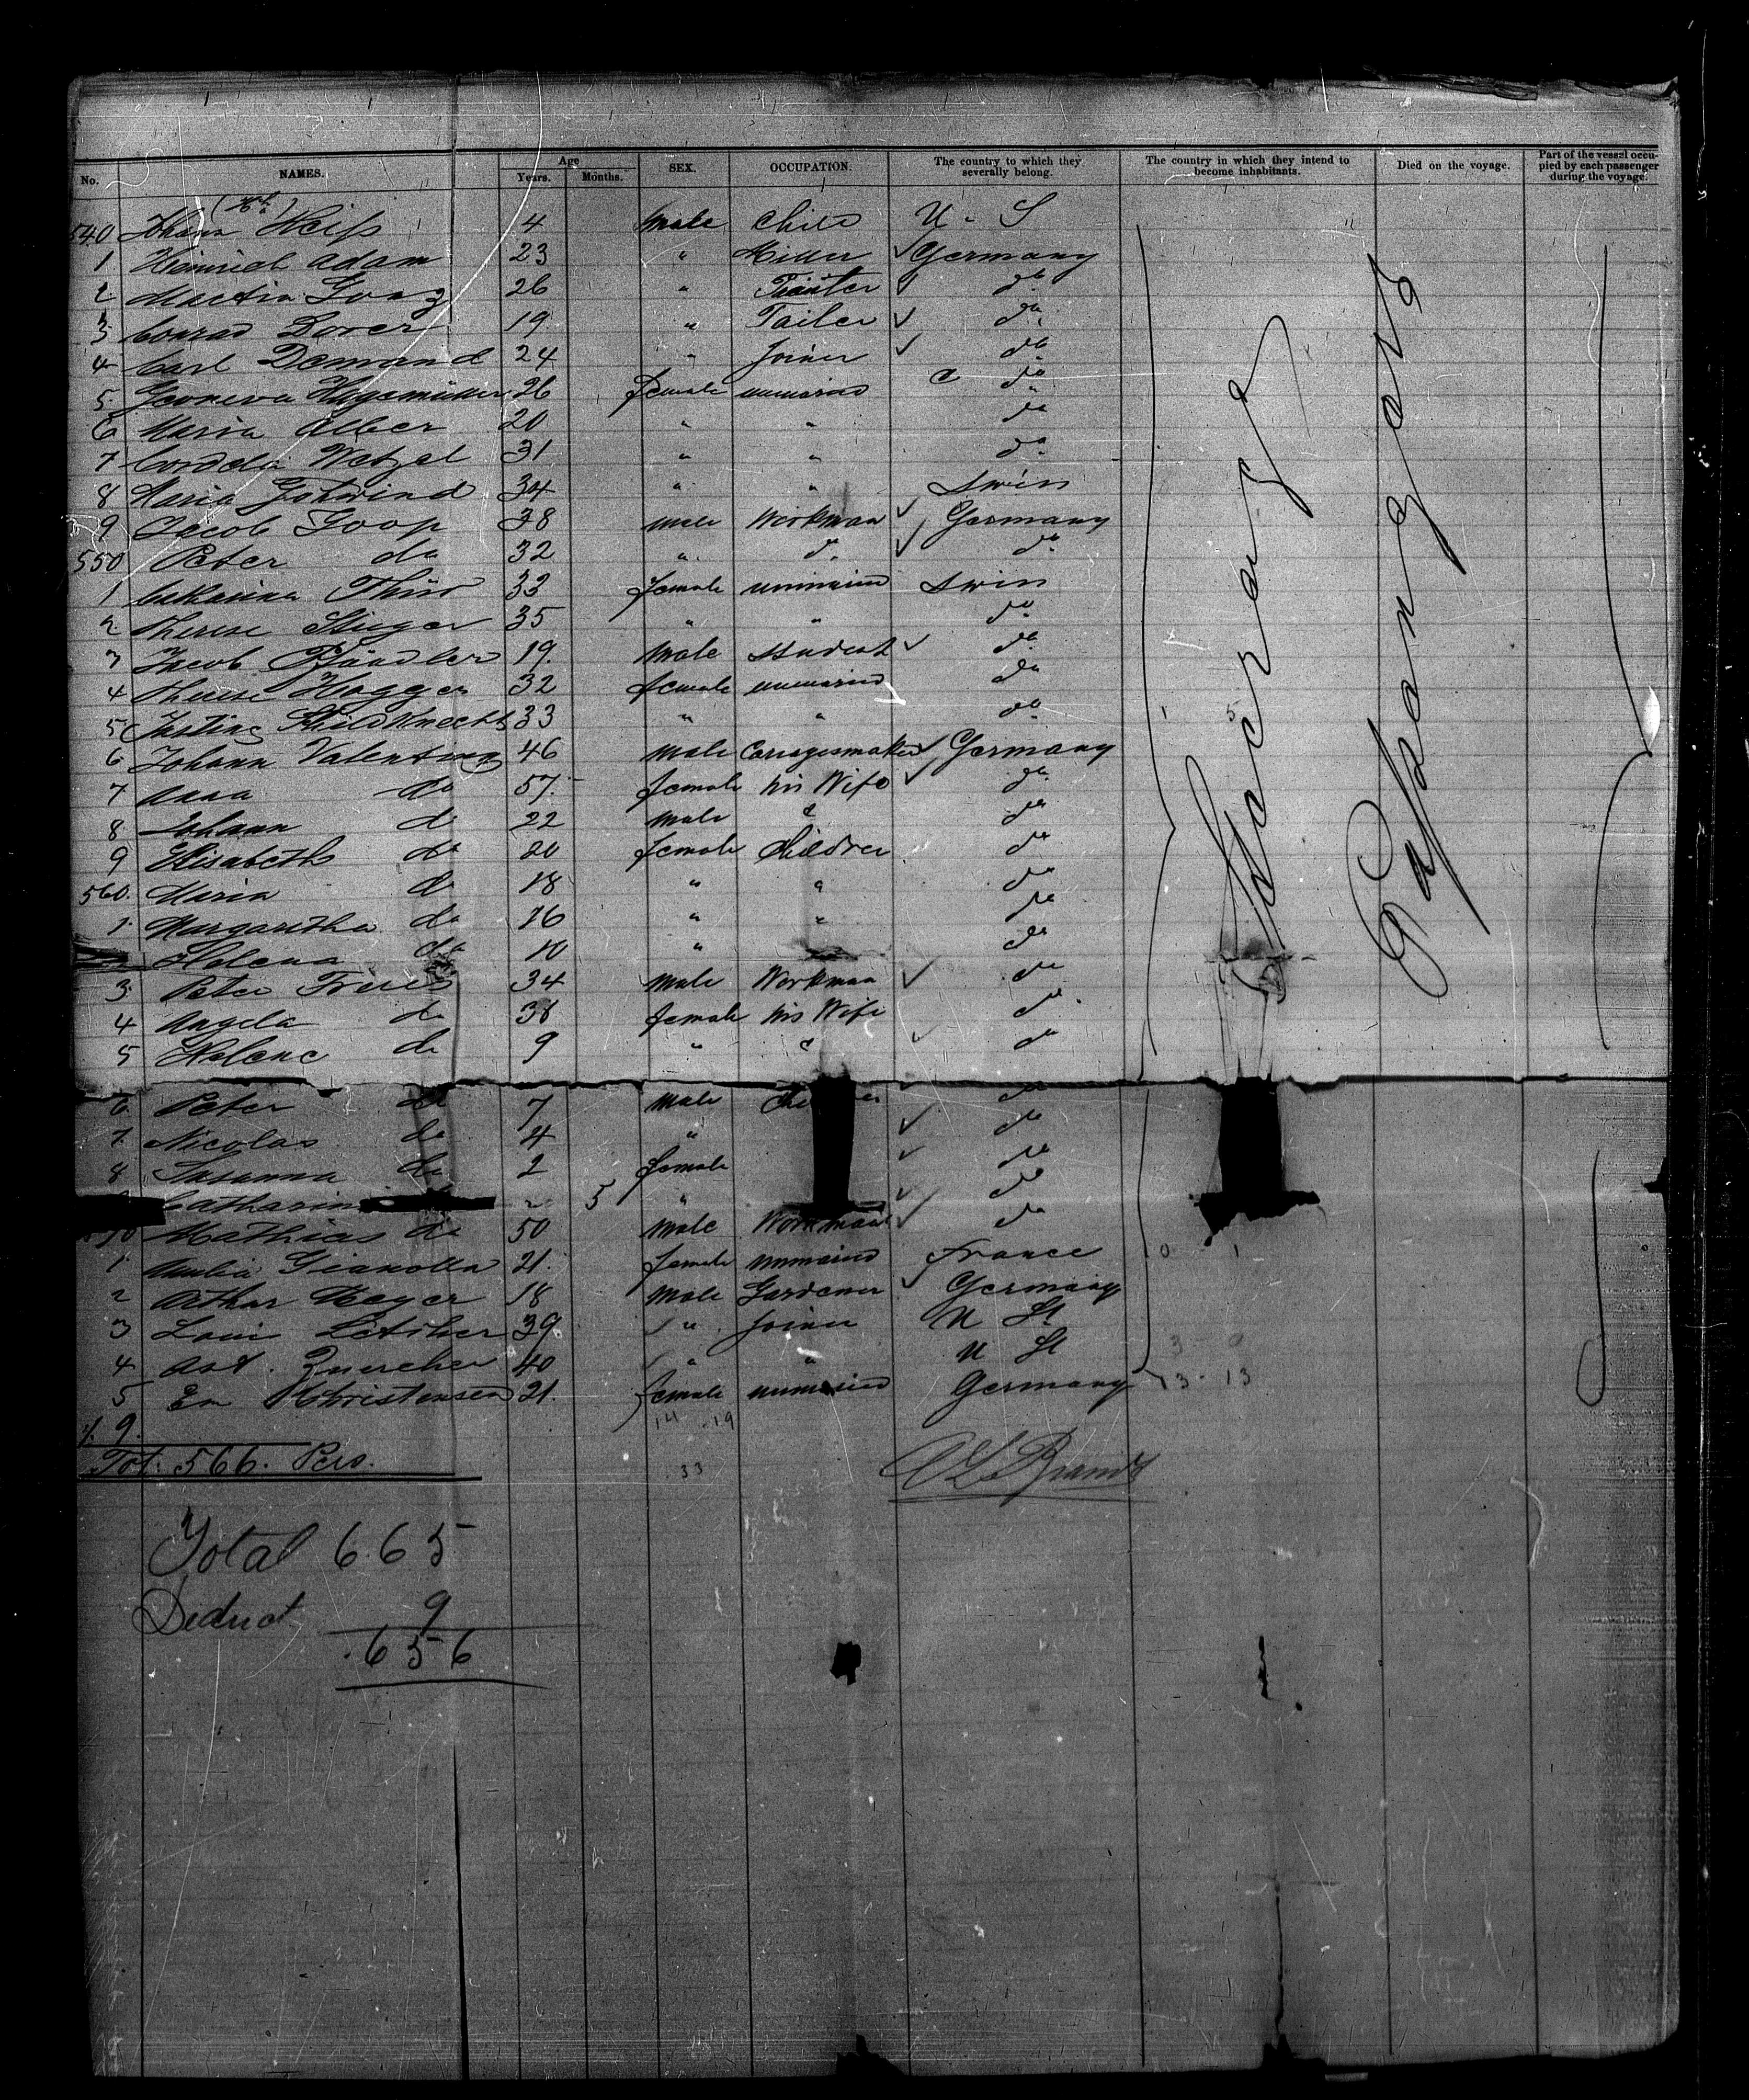 No. NAMES. Age Years. Months. SEX. OCCUPATION. The country to which they severally belong. The country in which they intend to become inhabitants. Died on the voyage. Part of the vessel occupied by each passenger during the voyage.
540 Johann Heiß 4 male Child U. S
1 Heinrich Adam 23 " Miller ✓ Germany
2 Martin 26 " ✓ do
3 Conrad Dorer 19 " Tailer ✓ do
4 Carl Demand 24 " Joiner ✓ do
5 Genoveva Hugemüller 26 female unmaried do
6 Maria Alber 20 " " do
7 Cordelia Wetzel 31 " " do
8 Maria Gohwind 34 " " Swiss
9 Jacob Goop 38 male Workman ✓ Germany
550 Peter do 32 " do ✓ do
1 Catharina Thür 33 female unmaried Swiss
2 Therese Stieger 35 " " do
3 Jacob Pfändler 19 male student ✓ do
4 Therese Hogger 32 female unmaried do
5 Justina Schildknecht 33 " " do
6 Johann Valentin 46 male Cariagesmaker ✓ Germany
7 Anna do 57 female his Wife ✓ do
8 Johann do 22 male do
9 Elisabeth do 20 female Children do
560 Maria do 18 " " do
1 Margaretha do 16 " " do
Helena do 10 " do
3 Peter Freres 34 male Workman ✓ do
4 Angela do 38 female his Wife do
5 Helene do 9 " ✓ do
6 Peter do 7 male ✓ do
7 Nicolas do 4 " ✓ do
8 Susanna do 2 female ✓ do
Catharin 5 " ✓ do
Mathias do 50 male Workman ✓ do
1 Amelia Gianolla 21 female unmaried France
2 Arthur Meyer 18 male Gardener ✓ Germany
3 Loui Letscher 39 ✓ " Joiner U St
4 Ant. Zuercher 40 ✓ " " U St
5 Em Christensen 21 female unmaried Germany
Steerage
Paßangers
14 - 19
% 9.
Tot: 566. Pers.
33
Brandt
Total 665
Deduct 9
656